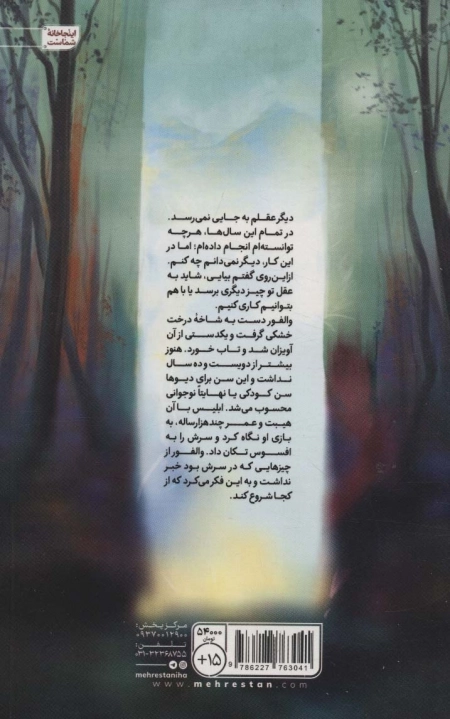 اینجا خانهٔ
شماست
دیگر عقلم به جایی نمی‌رسد.
در تمام این سال‌ها، هرچه
توانسته‌ام انجام داده‌ام؛ اما در
این کار، دیگر نمی‌دانم چه کنم.
ازاین‌روی گفتم بیایی، شاید به
عقل تو چیز دیگری برسد یا با هم
بتوانیم کاری کنیم.
والفور دست به شاخهٔ درخت
خشکی گرفت و یک‌دستی از آن
آویزان شد و تاب خورد. هنوز
بیشتر از دویست و ده سال
نداشت و این سن برای دیوها
سن کودکی یا نهایتاً نوجوانی
محسوب می‌شد. ابلیس با آن
هیبت و عمر چندهزارساله، به
بازی او نگاه کرد و سرش را به
افسوس تکان داد. والفور از
چیزهایی که در سرش بود خبر
نداشت و به این فکر می‌کرد که از
کجا شروع کند.
مرکز پخش:
۰۹۳۷۰۰۱۲۹۰۰
تلفن:
۰۳۱-۳۲۳۶۸۷۵۵
mehrestaniha
www.mehrestan.com
۵۴۰۰۰
تومان
+۱۵
9 786227 763041